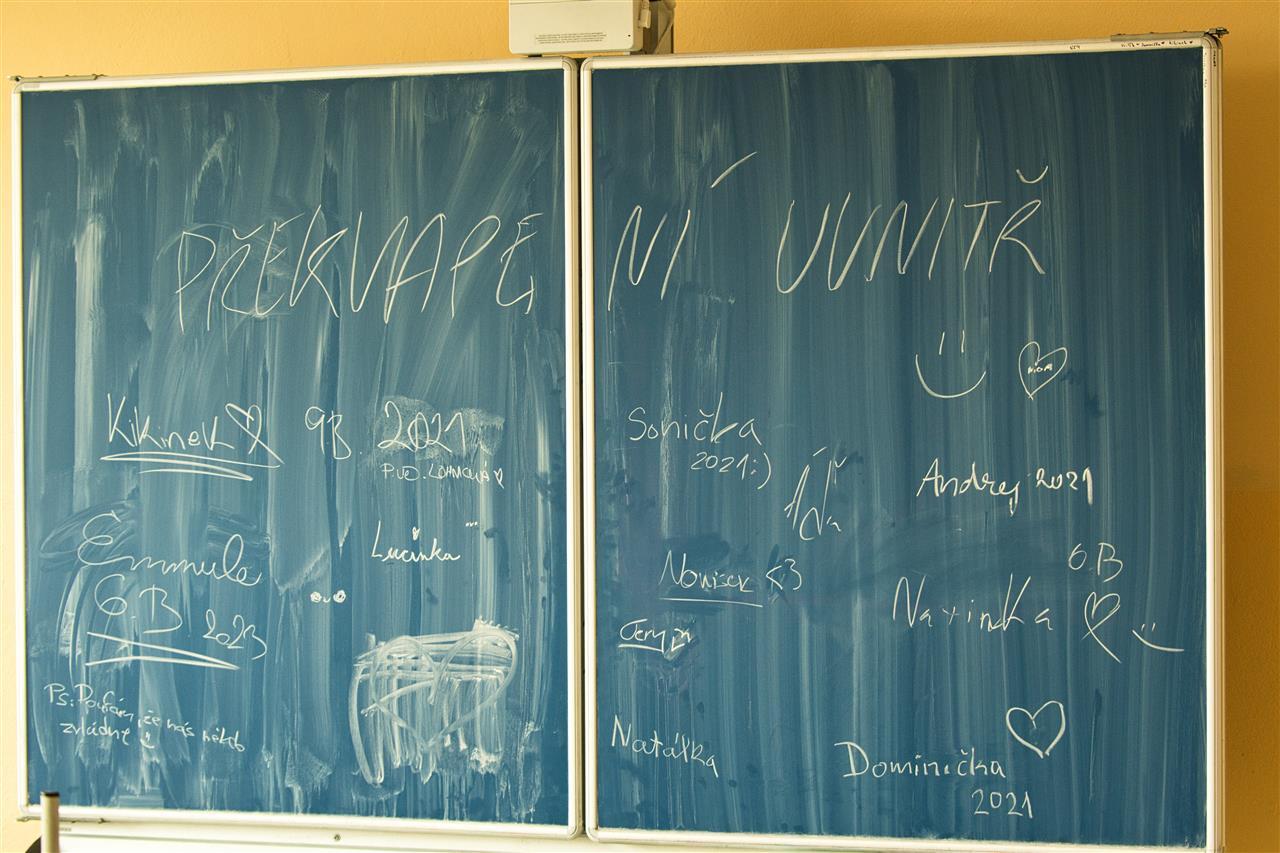 PŘEKVAPENÍ UVNITŘ
Kikinek 9B. 2021
Lucinka
Emmule
6.B. 2023
Ps: Doufám, že nás někdo
zvládne
Sonička
2021:)
Andrej 2021
Nonísek <3
6.B
Natinka
Natálka
Dominička
2021